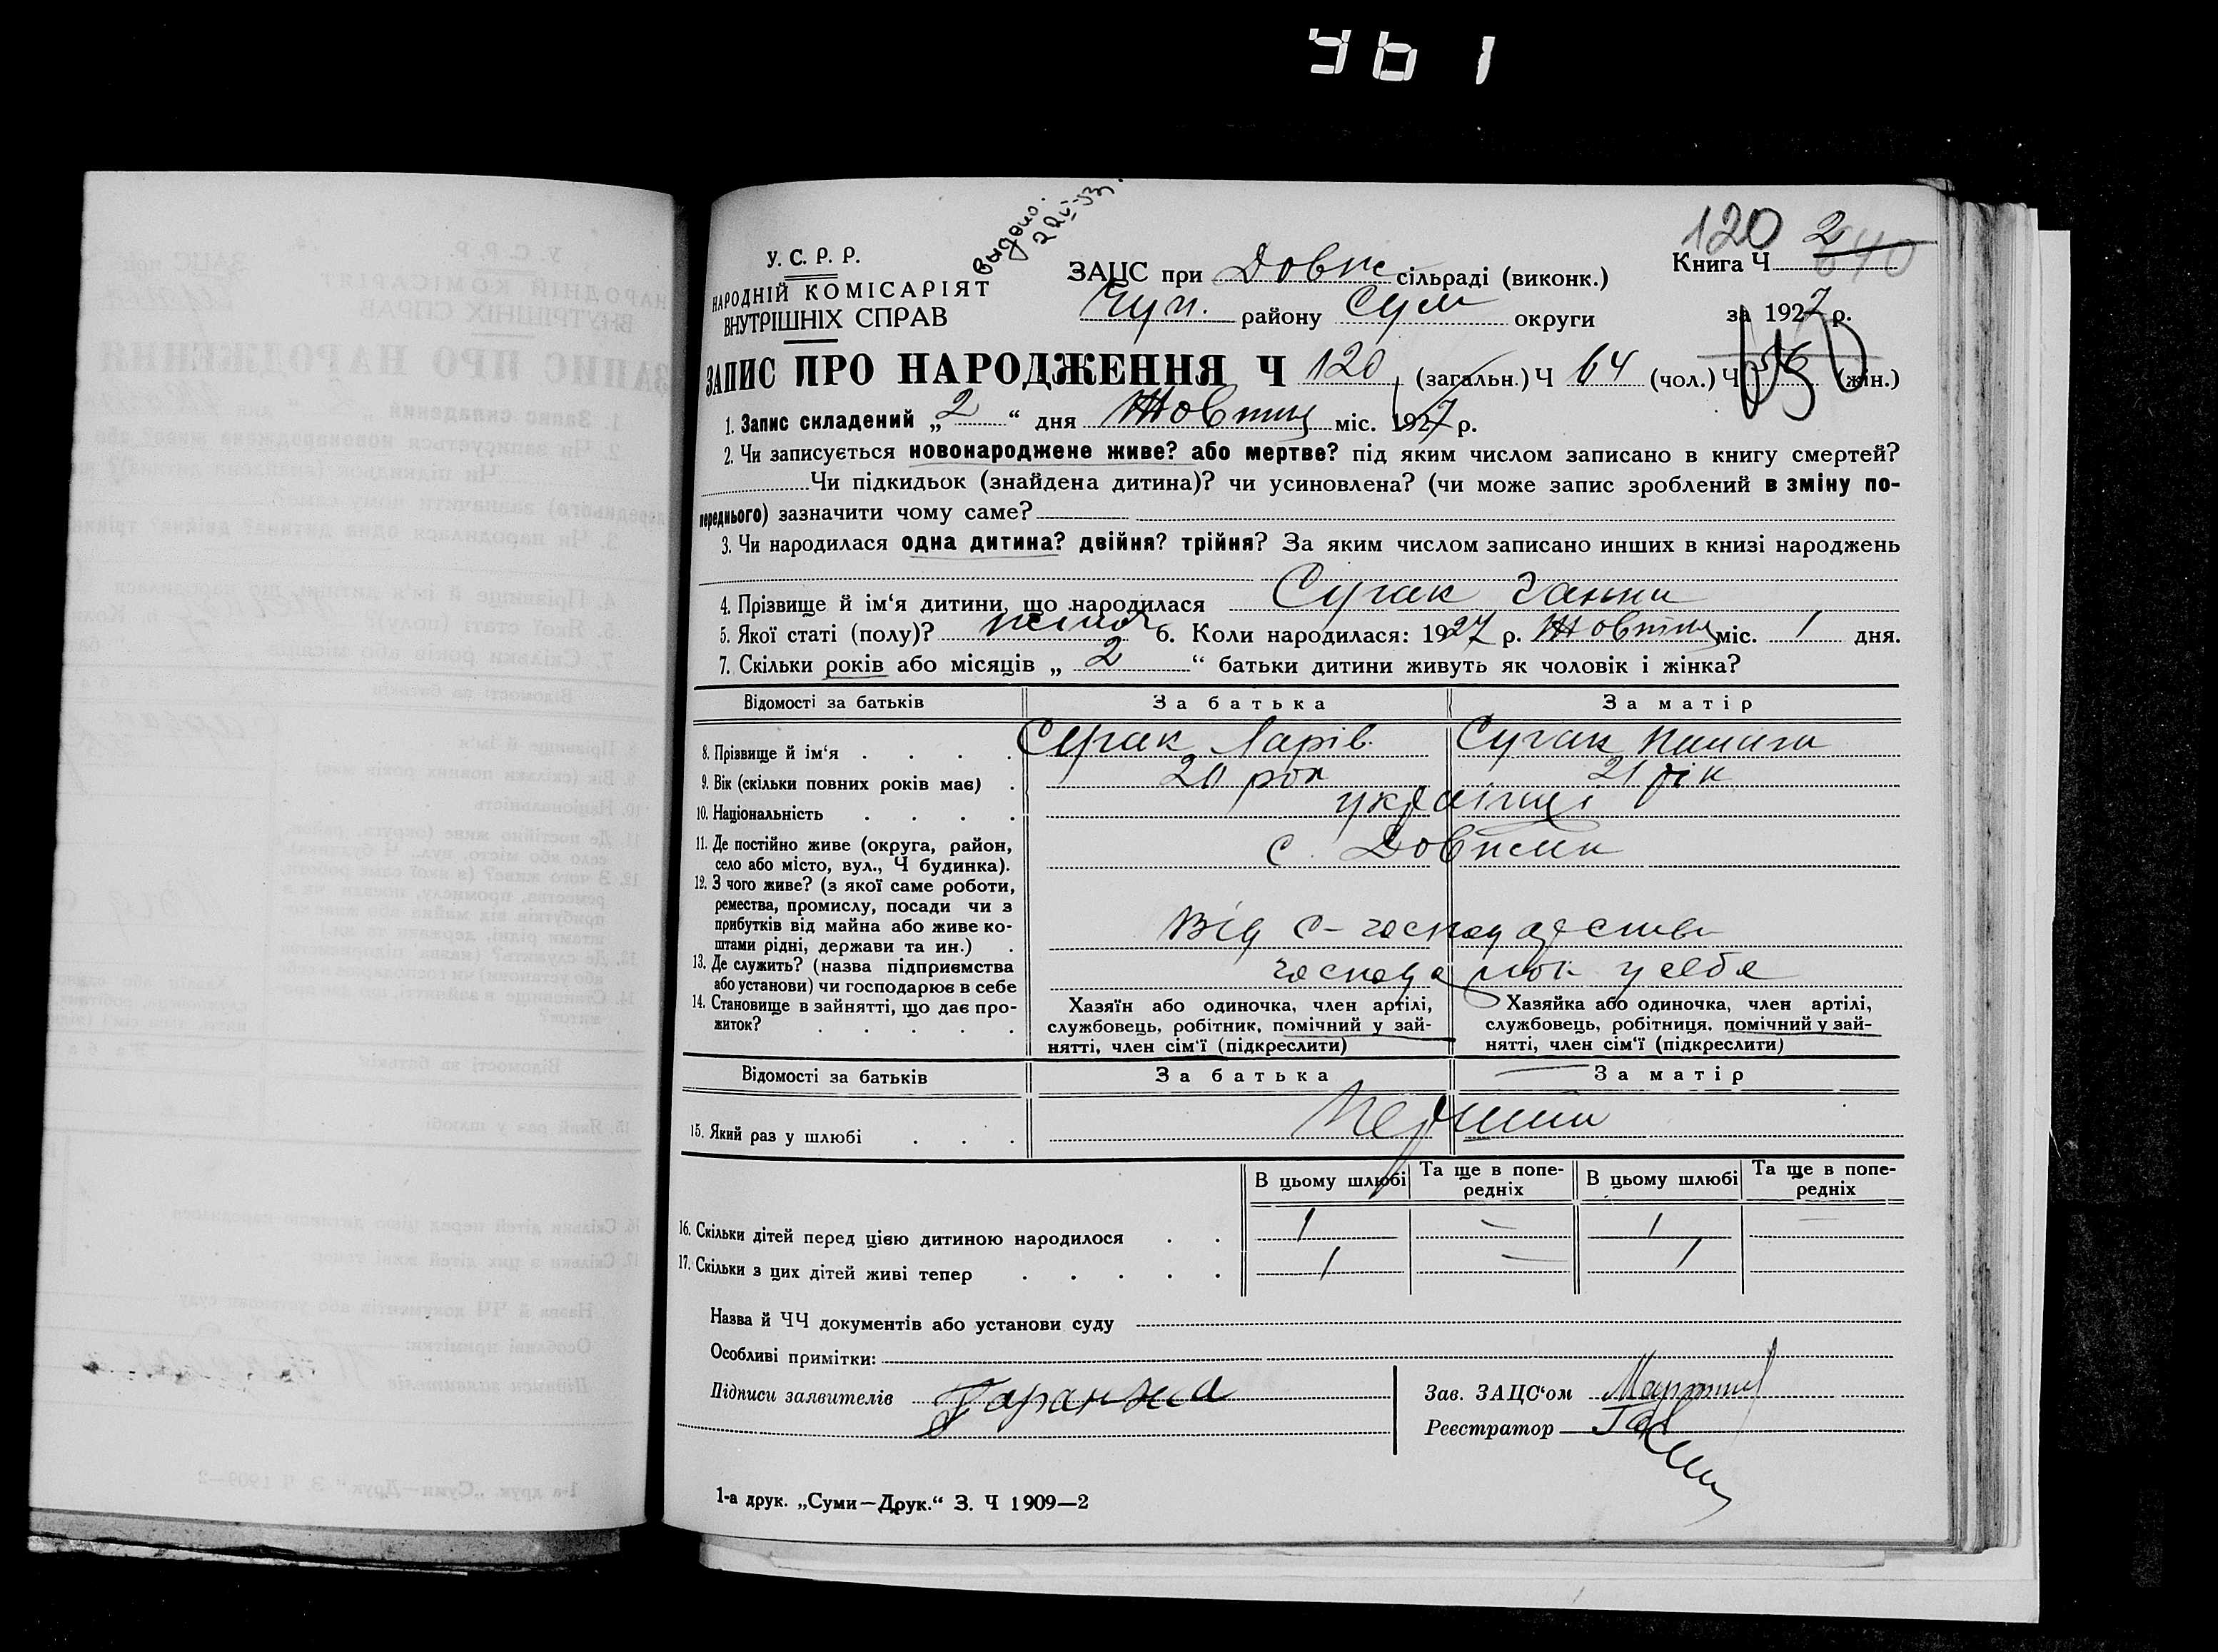 961
Выдано.
120 2
У. С. Р. Р.
НАРОДНІЙ КОМІСАРІЯТ
ВНУТРІШНІХ СПРАВ
ЗАЦС при Довж сільраді (виконк.)
Чуп. району Сум округи
Книга Ч
за 1927 р.
ЗАПИС ПРО НАРОДЖЕННЯ Ч 120 (загальн.) Ч 64 (чол.) Ч 56 (жін.)
1. Запис складений „ 2 “ дня Жовтня міс. 1927 р.
2. Чи записується новонароджене живе? або мертве? під яким числом записано в книгу смертей?
Чи підкидьок (знайдена дитина)? чи усиновлена? (чи може запис зроблений в зміну по-
переднього) зазначити чому саме?
3. Чи народилася одна дитина? двійня? трійня? За яким числом записано инших в книзі народжень
4. Прізвище й ім‘я дитини, що народилася Сугак Ганна
5. Якої статі (полу)? жіноч 6. Коли народилася: 1927 р. Жовтня міс. 1 дня.
7. Скільки років або місяців „ 2 “ батьки дитини живуть як чоловік і жінка?
Відомості за батьків За батька За матір
8. Прізвище й ім‘я . . . . Сугак Ларів. Сугак
9. Вік (скільки повних років має) . 20 рок 21 рік
10. Національність . . . . українці
11. Де постійно живе (округа, район,
село або місто, вул., Ч будинка). с. Довжик
12. З чого живе? (з якої саме роботи,
ремества, промислу, посади чи з
прибутків від майна або живе ко-
штами рідні, держави та ин.) . Від с-господарства
13. Де служить? (назва підприємства
або установи) чи господарює в себе у себе
14. Становище в зайнятті, що дає про-
житок? . . . . .
Хазяїн або одиночка, член артілі,
службовець, робітник, помічний у зай-
нятті, член сім‘ї (підкреслити)
Хазяйка або одиночка, член артілі,
службовець, робітниця. помічний у зай-
нятті, член сім‘ї (підкреслити)
Відомості за батьків За батька За матір
15. Який раз у шлюбі . . . Перший
В цьому шлюбі Та ще в попе-редніх В цьому шлюбі Та ще в попе-редніх
16. Скільки дітей перед цією дитиною народилося . . 1 – 1 –
17. Скільки з цих дітей живі тепер . . . . . 1 – 1
Назва й ЧЧ документів або установи суду
Особливі примітки:
Підписи заявителів Гаранжа
Зав. ЗАЦС‘ом
Реєстратор
1-а друк. „Суми—Друк.“ З. Ч 1909—2